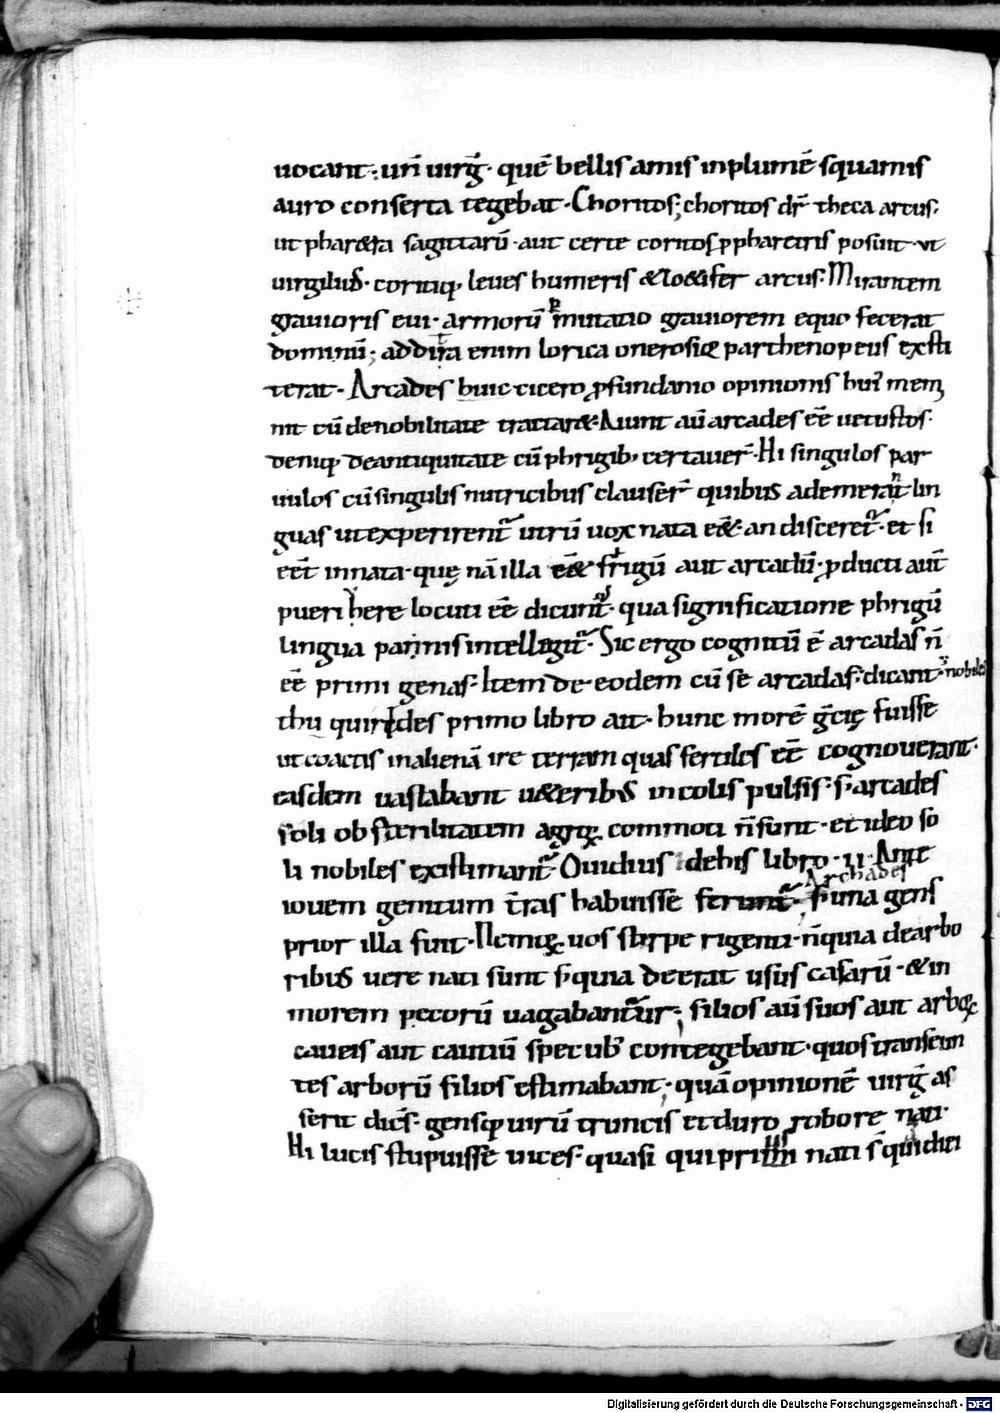 uocant · uñ uirḡ · quē bellis amis inplumē squamis
auro conserta tegebat · Choritos; choritos dr̄ theca arcus;
ut pharetra sagittarū · aut certe coritos ꝓ pharetris posuit · ut
uirgilius · coritiq; leues humeris & loetifer arcus · Mirantem
grauioris eui · armorū mutatio grauiorem equo fecerat
dominū; addita enim lorica onerosiꝰ parthenopeus exsti
terat · Arcades huic cicero ꝓfundamo opinionis huiꝰ mem
nit cū de nobilitate tractaret · Aiunt aū arcades eē uetustos ·
deniq; de antiquitate cū phrigib; certauer̄ · Hi singulos par
uulos cū singulis nutricibus clauser̄ quibus ademerant lin
guas ut experirent̄ utrū uox nata eēt · an disceret̄ · et si
eēt innata · quę nā illa eēt frigū aut arcadū · ꝓducti aūt
pueri here locuti eē dicunt̄ · qua significatione phrigū
lingua panis intelligit̄ · Sic ergo cognitū ē arcadas ñ
eē primi genas · Item de eodem cū se arcadas; dicant · nobiles
thu quirides primo libro ait · hunc morē ḡcię fuisse
ut coactis in alienā ire terram quas fertiles eē cognouerant ·
easdem uastabant ueteribus incolis pulsis · s; arcades
soli ob sterilitatem agroꝝ commoti ñ sunt · et ideo so
li nobiles existimant̄ · Ouidius idehis libro · II · Ante
Archades
iouem genitum t̄ras habuisse ferunt̄ · s; una gens
prior illa fuit · Nemiqꝫ uos stirpe rigenti · ñ quia de arbo
ribus uere nati sunt s; quia deerat usus casarū · & in
morem pecorū uagabantur; filios aū suos aut arboꝝ
caueis aut cautiū specubꝰ contegebant · quos transeun
tes arborū filios estimabant; quā opinionē uirḡ as
serit dicēs · gensq; uirū truncis et duro robore nati ·
Hi lucis stupuisse uices · quasi qui primi nati s; quidiei
Digitalisierung gefördert durch die Deutsche Forschungsgemeinschaft - DFG